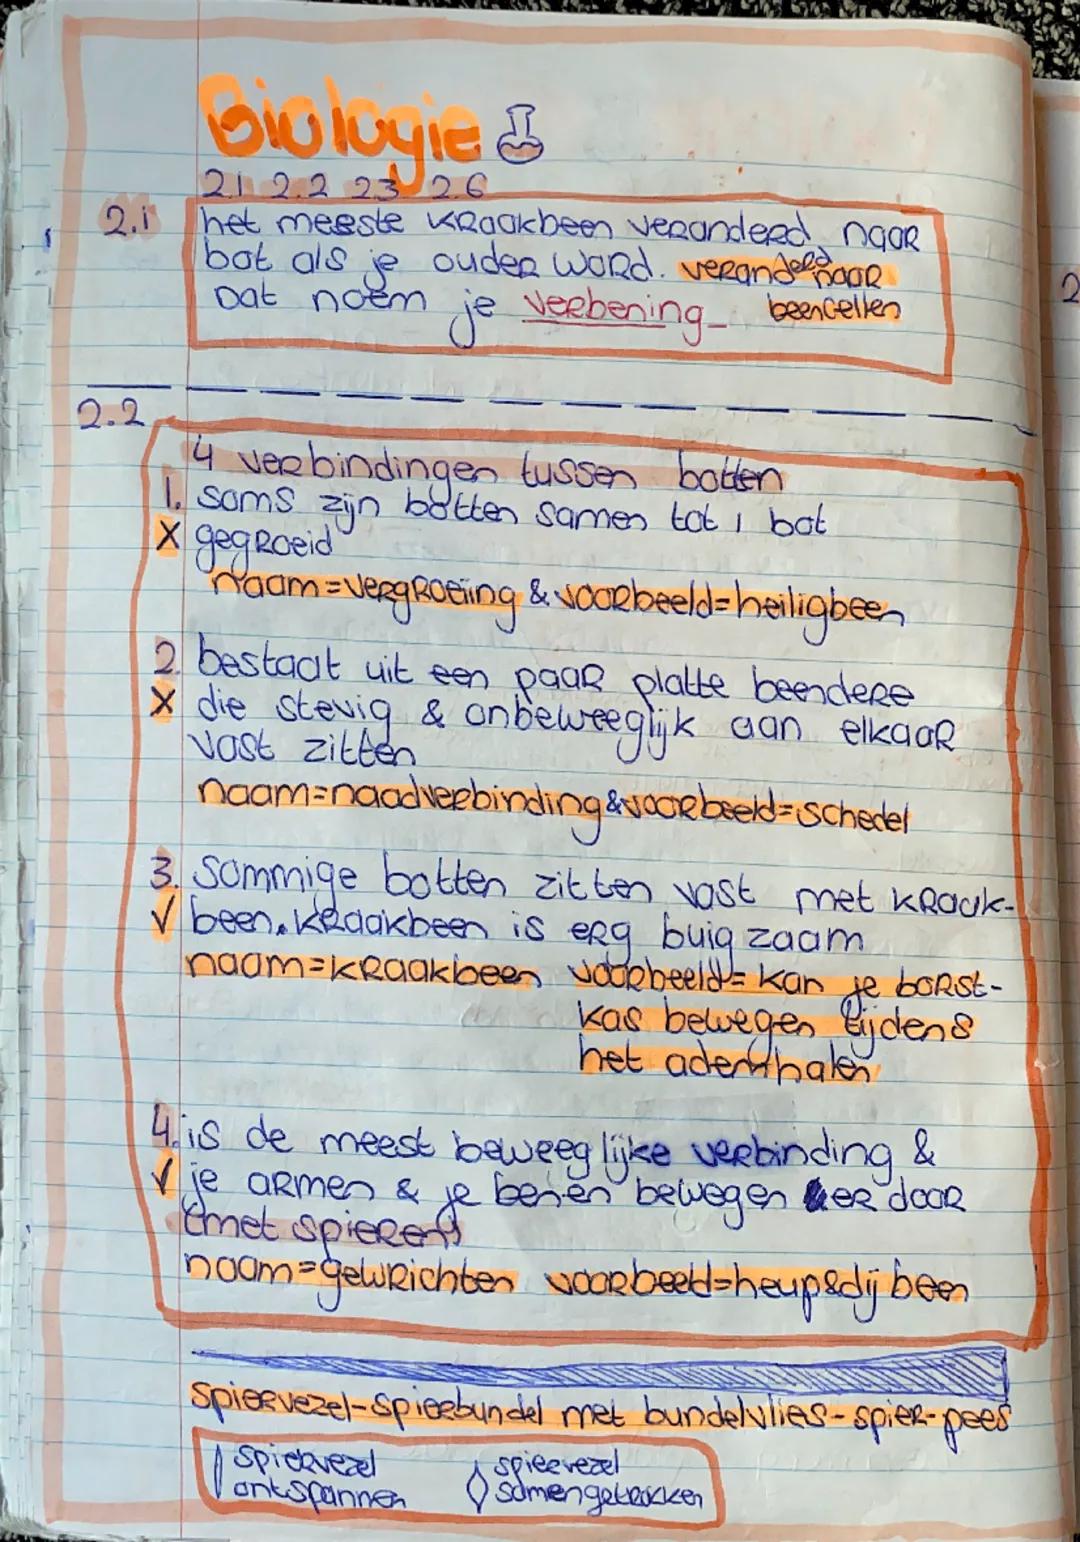 Biologie
2.1 2.2 2.3 2.6
2.1 het meeste kraakbeen veranderd naar
bot als je ouder word. veranderd naar
Dat noem je verbening beencellen
2.2
4 verbindingen tussen botten
1. soms zijn botten samen tot 1 bot
X gegroeid
naam=vergroeiing & voorbeeld=heiligbeen
2. bestaat uit een paar platte beendere
X die stevig & onbeweeglijk aan elkaar
vast zitten
naam=naadverbinding & voorbeeld=schedel
3. sommige botten zitten vast met kraak-
√ been. kraakbeen is erg buigzaam
naam=kraakbeen voorbeeld= kan je borst-
kas bewegen tijdens
het ademhalen
4. is de meest beweeglijke verbinding &
√ je armen & je benen bewegen er door
(met spieren)
naam=gewrichten voorbeeld=heup&dijbeen
spiervezel-spierbundel met bundelvlies-spier-pees
spiervezel spiervezel
ontspannen samengetrokken
2